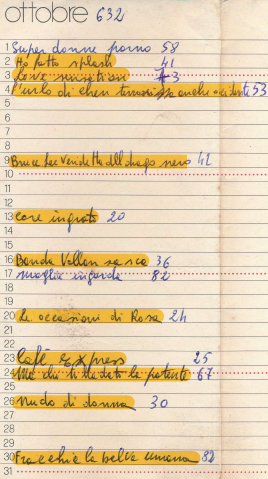 ottobre 632
1 Super donne porno 58
2 Ho fatto splash 41
3 Love 3
4 L'urlo di chen terrorizza anche occidente 53
5
6
7
8
9 Bruce Lee Vendetta del drago nero 42
10
11
12
13 care ingrate 20
14
15
16 Banda Vallan sasca 36
17 moglie ingorda 82
18
19
20 le occasioni di Rosa 24
21
22
23 Café Express 25
24 Ma che ti ha dato la patente 67
25
26 nudo di donna 30
27
28
29
30 Fracchia la belva umana 82
31